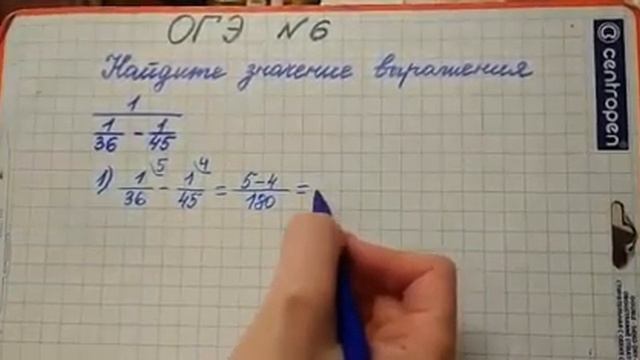 ОГЭ №6
Найдите значение выражения
1
1/36 - 1/45
1) 1/36 ⁵ - 1/45 ⁴ = 5-4/180 =
centropen